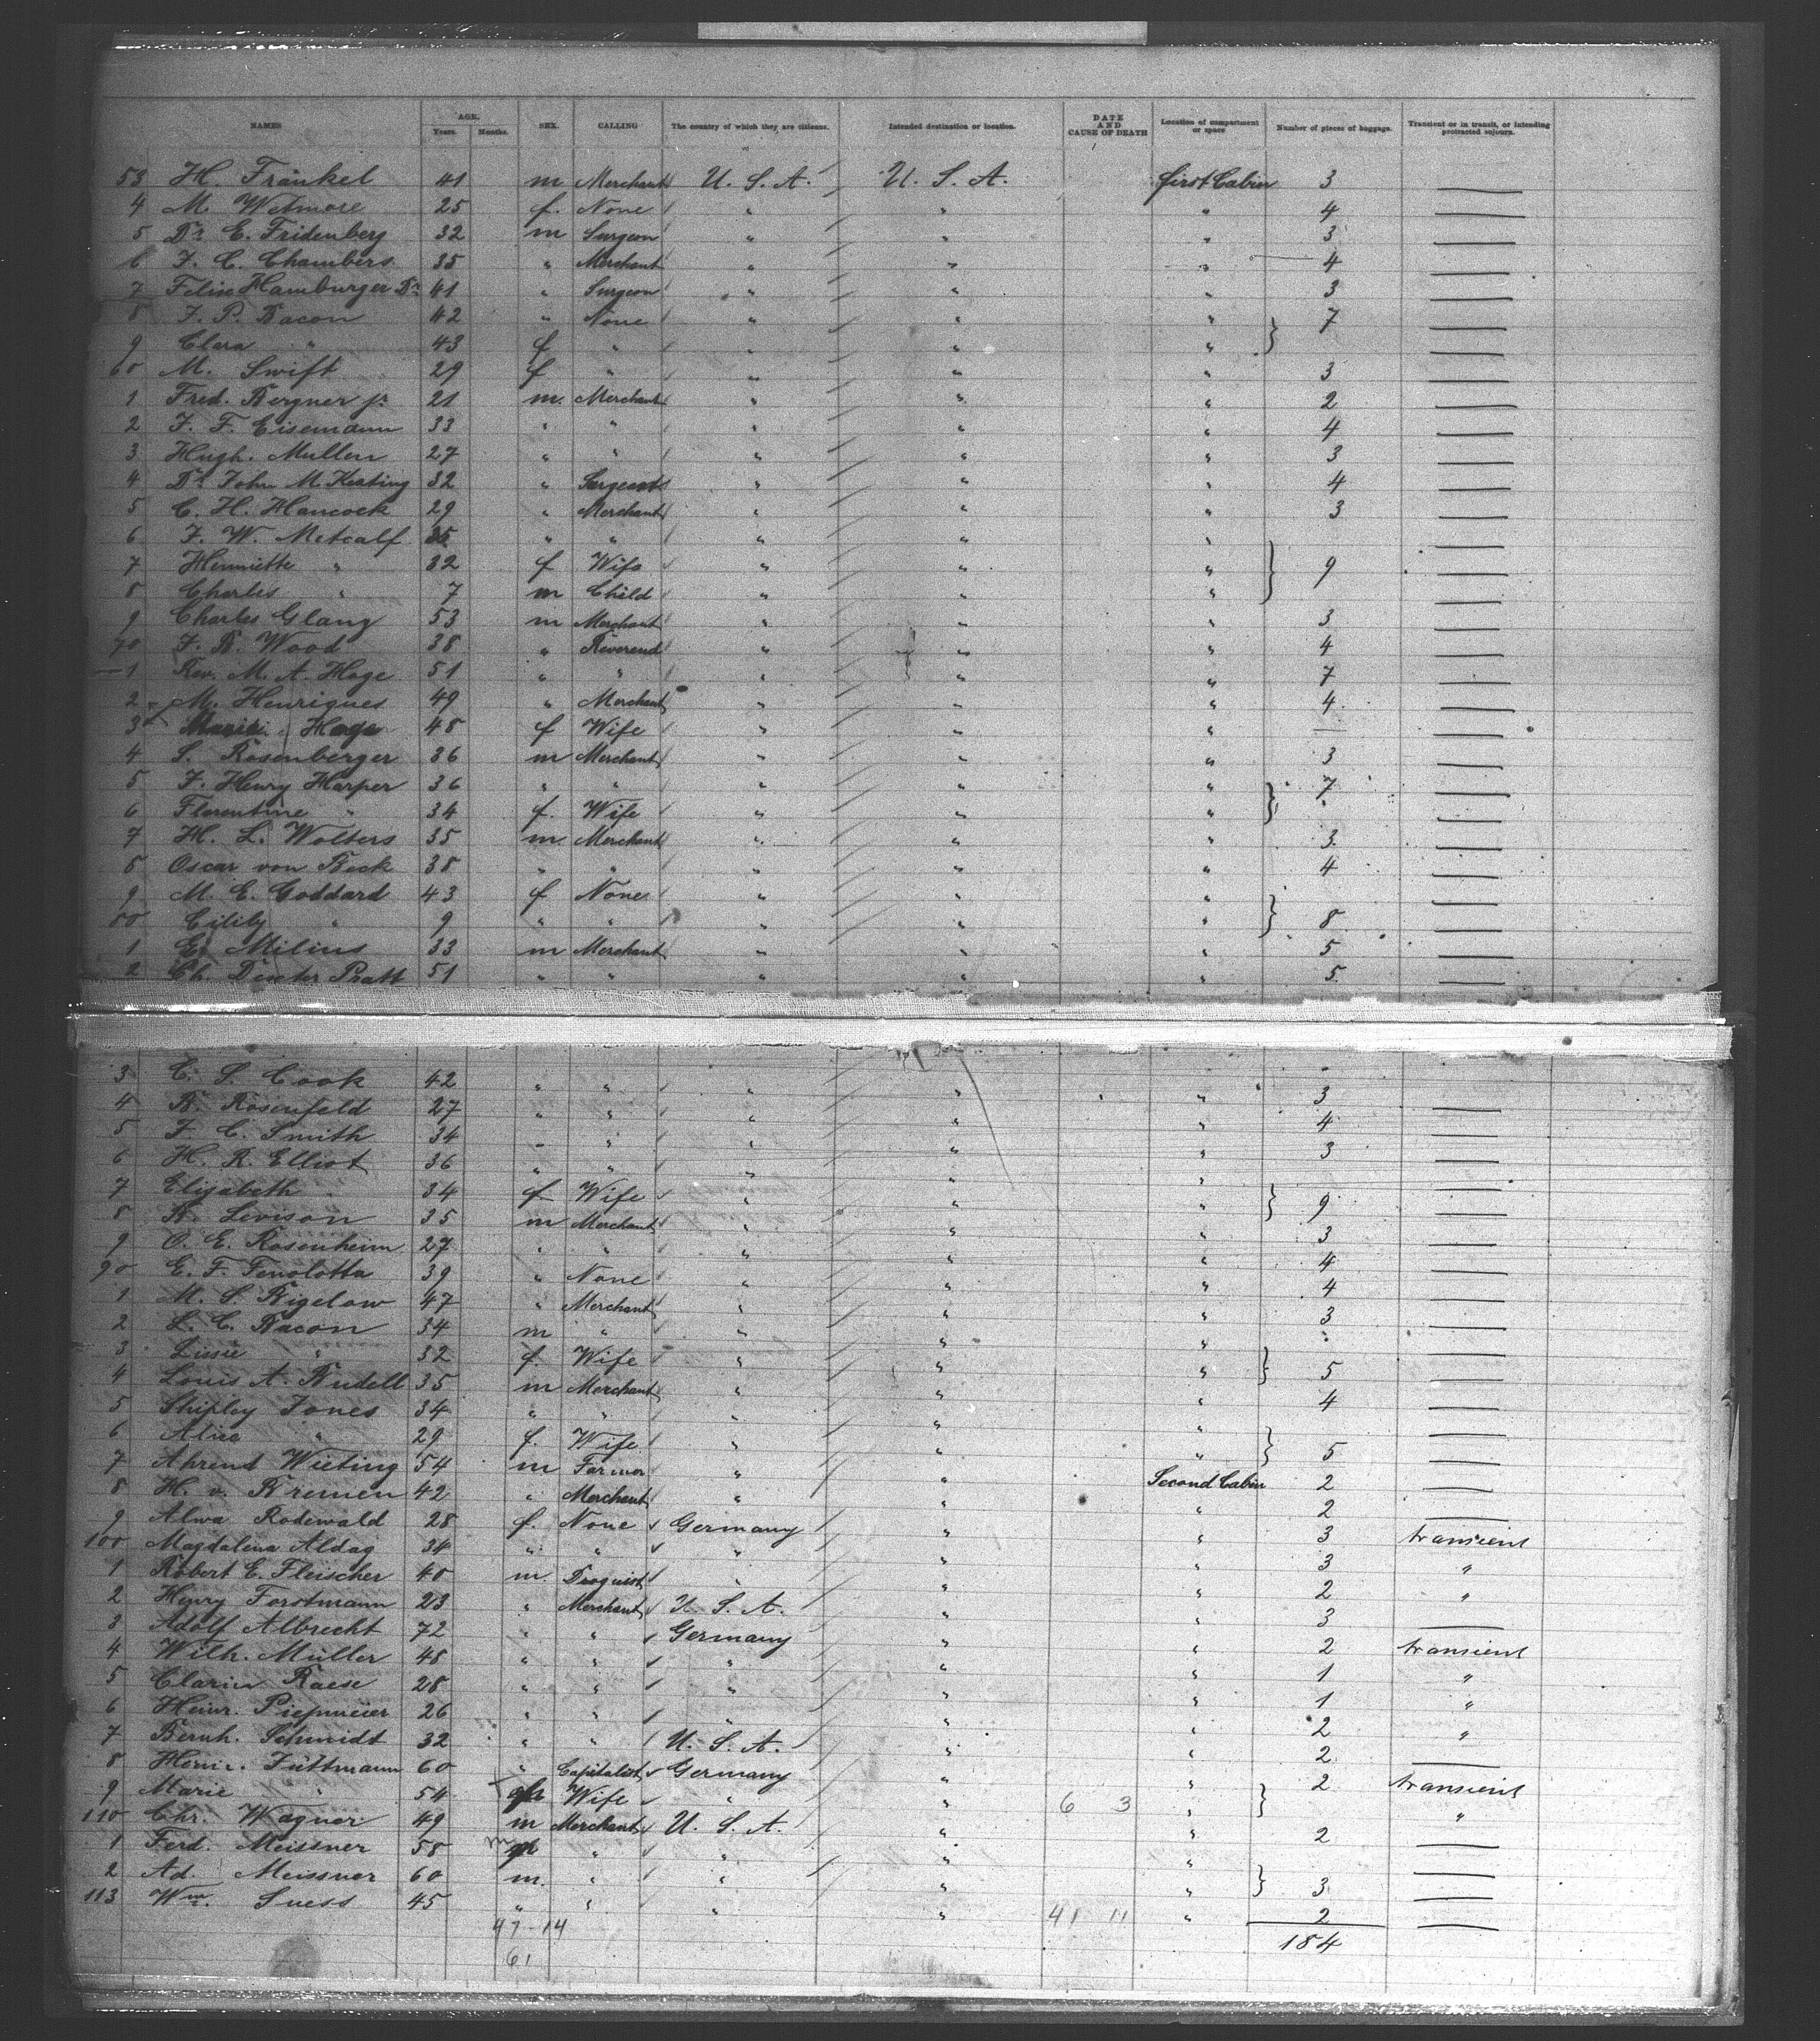 NAMES AGE. Years. Months. SEX. CALLING The country of which they are citizens. Intended destination or location. DATE AND CAUSE OF DEATH Location of compartment or space Number of pieces of baggage. Transient or in transit, or intending protracted sojourn.
53 H. Fränkel 41 m Merchant U. S. A. U. S. A. first Cabin 3 —
4 M. Wetmore 25 f. None " " " 4 —
5 Dr. E. Fridenberg 32 m Surgeon " " " 3 —
6 F. C. Chambers 35 " Merchant " " " 4 —
7 Felix Hamburger Dr. 41 " Surgeon " " " 3 —
8 F. P. Bacon 42 " None " " " 7 —
9 Clara " 43 f " " " " —
60 M. Swift 29 f " " " " 3 —
1 Fred. Bergner jr. 21 m. Merchant " " " 2 —
2 F. F. Eisemann 33 " " " " " 4 —
3 Hugh. Mullen 27 " " " " " 3 —
4 Dr. John M. Keating 32 " " " " 4 —
5 C. H. Hancock 29 " Merchant " " " 3 —
6 F. W. Metcalf 35 " " " " " —
7 Henriette " 32 f Wife " " " 9 —
8 Charles " 7 m Child " " " —
9 Charles Glanz 53 m Merchant " " " 3 —
70 F. B. Wood 38 " Reverend " " " 4 —
1 Rev. M. A. Hoge 51 " " " " " 7 —
2 M. Henriques 49 " Merchant " " " 4 —
3 Hoge 48 f Wife " " " — —
4 S. Rosenberger 36 m Merchant " " " 3 —
5 F. Henry Harper 36 " " " " " 7 —
6 Florentine " 34 f. Wife " " " " —
7 H. L. Wolters 35 m Merchant " " " 3 —
8 Oscar von Bock 38 " " " " " 4 —
9 M. E. Goddard 43 f None " " " —
80 Cilily " 9 " " " " " 8 —
1 E. Milius 33 m Merchant " " " 5 —
2 Ch. Dexter Pratt 51 " " " " " 5 —
3 C. S. Cook 42 " " " " " 3 —
4 B. Rosenfeld 27 " " " " " 4 —
5 F. C. Smith 34 " " " " " 3 —
6 H. R. Elliot 36 " " " " " —
7 Elizabeth " 34 f Wife " " " 9 —
8 B. Levison 35 m Merchant " " " 3 —
9 O. E. Rosenheim 27 " " " " " 4 —
90 E. F. Fenolotta 39 " None " " " 4 —
1 M. S. Bigelow 47 " Merchant " " " 3 —
2 L. C. Bacon 34 m " " " " " —
3 Lissie " 32 f. Wife " " " 5 —
4 Louis A. Budell 35 m Merchant " " " 4 —
5 Shipley Jones 34 " " " " " —
6 Alice " 29 f. Wife " " " 5 —
7 Ahrend Wieting 54 m Farmer " " Second Cabin 2 —
8 H. v. Bremen 42 " Merchant " " " 2 —
9 Alwa Rodewald 28 f. None Germany " " 3 transient
100 Magdalena Aldag 34 " " " " " 3 "
1 Robert E. Fleischer 40 m. Drogist " " " 2 "
2 Henry Forstmann 23 " Merchant U. S. A. " " 3 —
3 Adolf Albrecht 72 " " Germany " " 2 transient
4 Wilh. Müller 48 " " " " " 1 "
5 Raese 28 " " " " " 1 "
6 Heinr. Piepmeier 26 " " " " " 2 "
7 Bernh. Schmidt 32 " " U. S. A. " " 2 —
8 Heinr. Füttmann 60 " Capitalist Germany " " 2 transient
9 Marie " 54 Wife " " 6 3 " "
110 Chr. Wagner 49 m Merchant U. S. A. " " 2 —
1 Ferd. Meissner 58 m " " " " —
2 Ad. Meissner 60 m. " " " " 3 —
113 Wm. Suess 45 " " " " 41 11 " 2 —
47-14 184
61